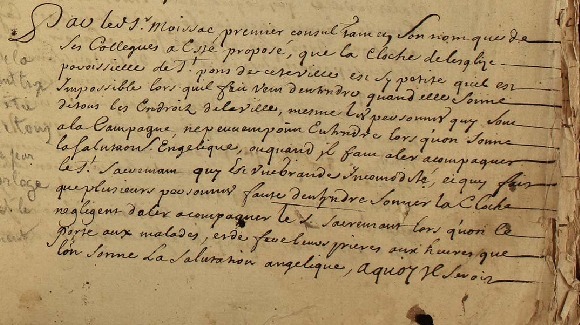 Par le Sr Moissac premier consul tant en son nom que de
ses Collegues a Esté proposé, que la Cloche de lesglize
parroissielle de St pons de cete ville est sy petite quil est
Impossible lors quil fait vent dentandre quand elle sonne
de tous les Endroitz de la ville, mesme les personnes quy sont
a la Campagne, ne peuvent point Entandre lors quon sonne
la salutation Engelique, ou quand il faut aler acompagner
le St sacremant quy Est une grande Incomodité, et quy fait
que plusieurs personnes faute dentandre sonner la Cloche
negligent daler acompagner le St sacremant lors quon le
porte aux malades, et de faire leurs prieres aux heures que
lon sonne La salutation angelique, a quoy Il seroit